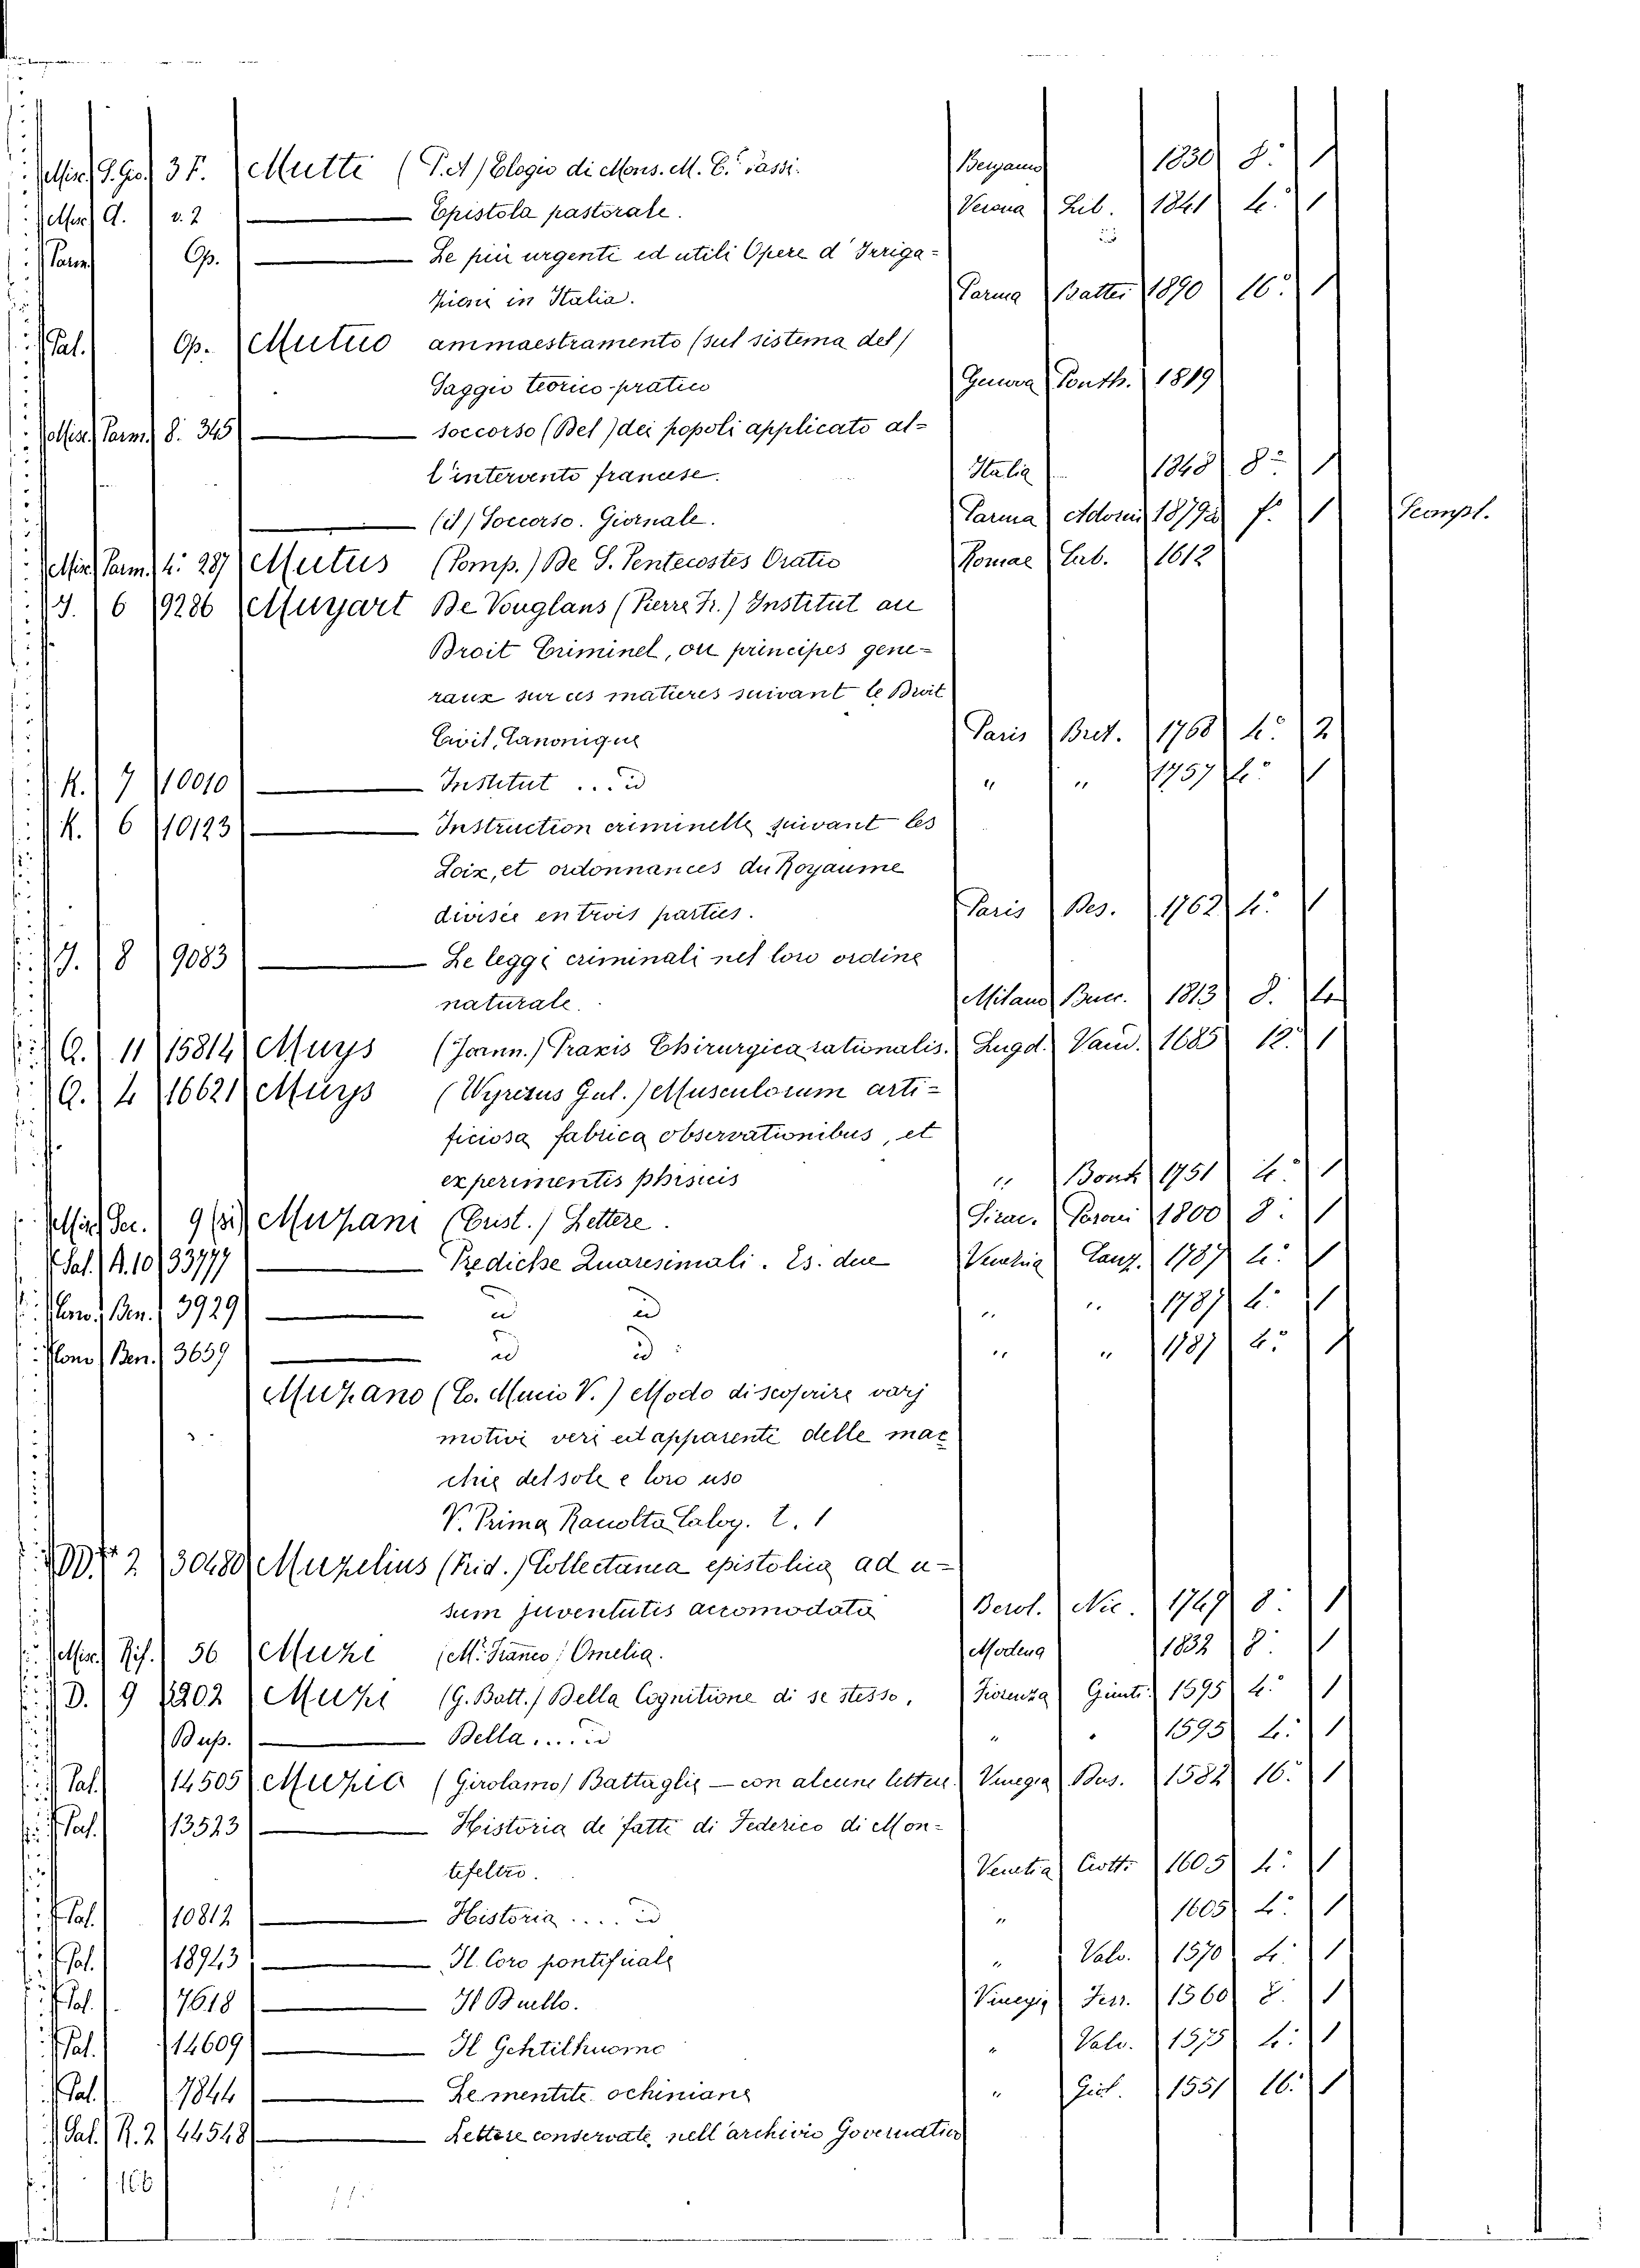 Misc. S. Gio. 3 F. Mutti (P. A) Elogio di Mons. M. C. Passi. Bergamo 1830 8.° 1
Misc. A. v. 2 — Epistola pastorale. Verona Lib. 1841 4.° 1
Parm. Op. — Le più urgenti ed utili Opere d'Irriga- id
zioni in Italia. Parma Battei 1890 16.° 1
Pal. Op. Mutuo ammaestramento (sul sistema del)
Saggio teorico-pratico Genova Ponth. 1819
Misc. Parm. 8.° 345 — soccorso (Del) dei popoli applicato al-
l'intervento francese. Italia 1848 8.° 1
— (il) Soccorso. Giornale. Parma Adorni 1879 f.° 1 Scompl.
Misc. Parm. 4.° 287 Mutus (Pomp.) De S. Pentecostes Oratio Romae Lub. 1612
J. 6 9286 Muyart De Vouglans (Pierre Fr.) Institut au
Droit Criminel, ou principes gene-
raux sur ces matieres suivant le Droit
Civil, Canonique Paris Bret. 1768 4.° 2
K. 7 10010 — Institut ... id " " 1757 4.° 1
K. 6 10123 — Instruction criminelle suivant les
Loix, et ordonnances du Royaume
divisée en trois parties. Paris Des. 1762 4.° 1
J. 8 9083 — Le leggi criminali nel loro ordine
naturale. Milano Bucc. 1813 8. 4
Q. 11 15814 Muys (Joann.) Praxis Chirurgica rationalis. Lugd. Vand. 1685 12. 1
Q. 4 16621 Muys (Wyrerus Gul.) Musculorum arti-
ficiosa fabrica observationibus, et
experimentis phisicis " Bonk 1751 4.° 1
Misc. Ser. 9 (bis) Muzani (Crist.) Lettere. Sirac. Poroni 1800 8.° 1
Sal. A. 10 33777 — Prediche Quaresimali. Es. due Venezia Lanz. 1787 4.° 1
Ben. 3929 — id id " " 1787 4.° 1
Ben. 3659 — id id " " 1787 4.° 1
Muzano (C. Mucio V.) Modo discoprire varj
motivi veri ed apparenti delle mac
chie del sole e loro uso
V. Prima Raccolta Calog. t. 1
2 30480 Muzelius (Frid.) Collectanea epistolica ad u-
sum juventutis accomodata Berol. Nic. 1749 8.° 1
Misc. Rif. 56 Muzi (M. Franco) Omelia. Modena 1832 8.° 1
D. 9 1202 Muzi (G. Batt.) Della Cognitione di se stesso. Fiorenza Giunti. 1595 4.° 1
Buss. — Della .... id " " 1595 4.° 1
Pal. 14505 Muzio (Girolamo) Battaglie — con alcune lettere. Vinegia Dus. 1582 16.° 1
Pal. 13523 — Historia de fatti di Federico di Mon-
tefeltro. Venetia Ciotti 1605 4.° 1
Pal. 10812 — Historia .... id " 1605 4.° 1
Pal. 18943 — Il Coro pontificale " Valv. 1570 4.° 1
Pal. 7618 — Il Duello. Vinegia Ferr. 1560 8. 1
Pal. 14609 — Il Gentilhuomo " Valv. 1575 4.° 1
Pal. 7844 — Le mentite ochiniane " Giol. 1551 16.° 1
Sal. R. 2 44548 — Lettere conservate nell'archivio Governativo
166